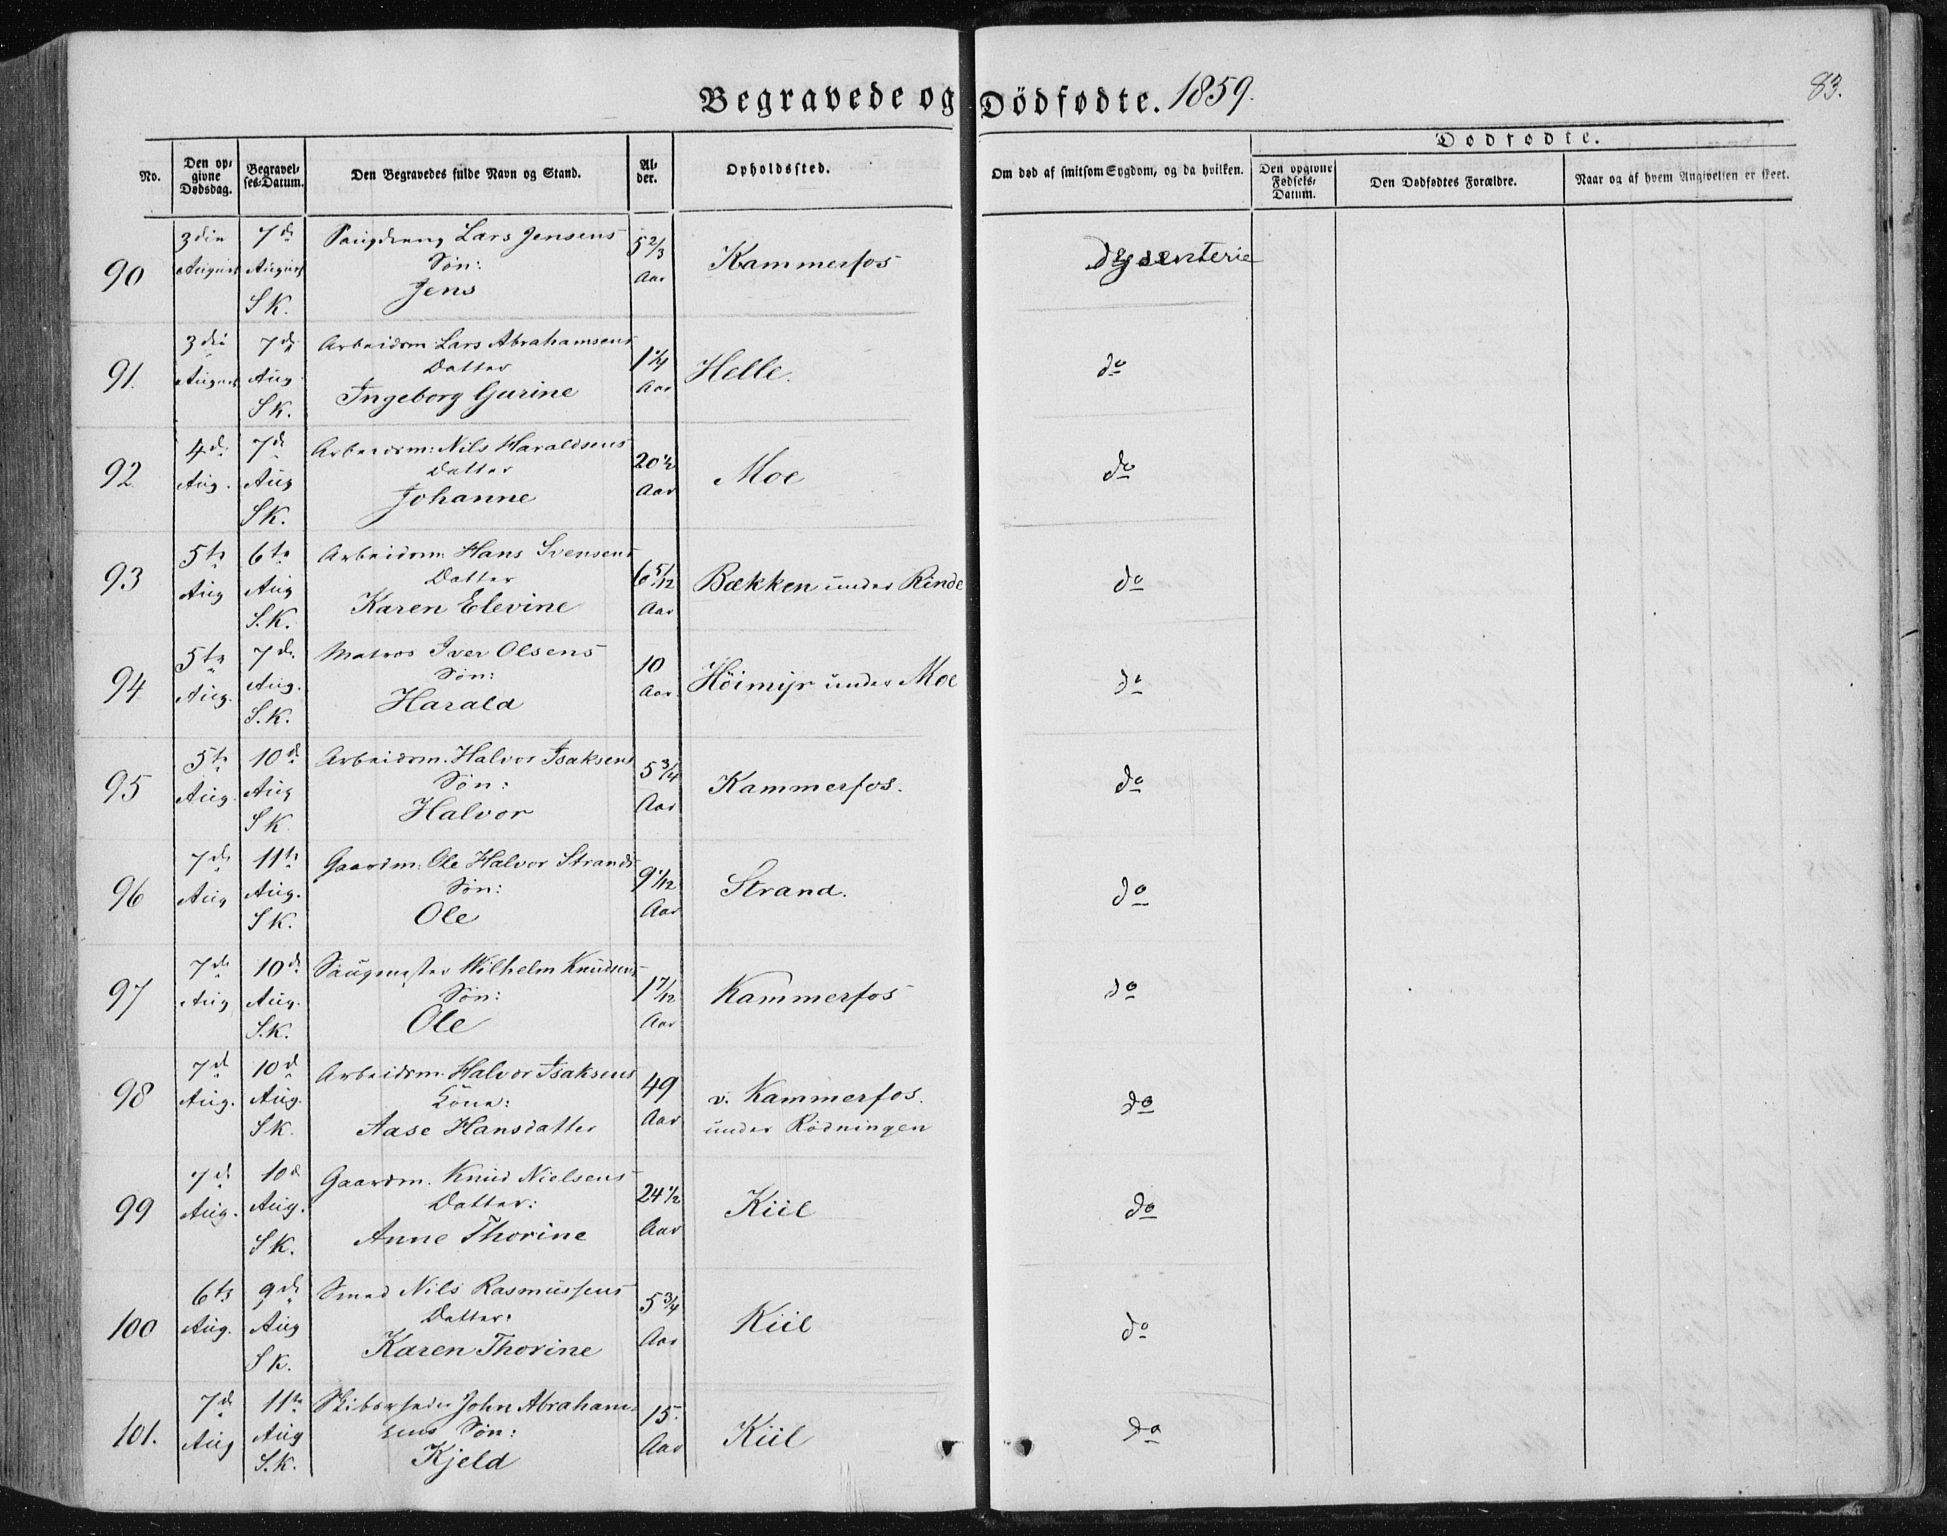 Begravede og Dödfødte. 1859.
83.
No.
Den opgivne Dødsdag.
Begravelses-Datum.
Den Begravedes fulde Navn og Stand.
Alder.
Opholdssted.
Om død af smitsom Sygdom, og da hvilken.
Dødfødte.
Den opgivne Fødsels-Datum.
Den Dødfødtes Forældre.
Naar og af hvem Angivelsen er skeet.
3die 7de Saugdreng Lars Jensens 5 2/3
90 August August Søn: Aar Kammerfos dysenterie
S K. Jens
3die 7de Arbeidsm: Lars Abrahamsens
91. August Aug. Datter Aar Helle. do
S K. Ingeborg Gurine
4de 7de Arbeidsm: Nils Haraldsens 20 1/2
92 Aug. Aug Datter Aar Moe do
S K. Johanne
5te 6te Arbeidsm. Hans Svensens 6 5/12
93 Aug Aug Datter Aar Bækken under Rinde do
S. K. Karen Elevine
5te 7de Matros Iver Olsens 10
94 Aug. Aug. Søn: Aar Höimyr under Moe do
S. K. Harald
5te 10de Arbeidsm. Halvor Isaksens 5 3/4
95 Aug. Aug Søn: Aar Kammerfos. do
S K. Halvor
7de 11te Gaardm: Ole Halvor Strands 9 1/12
96 Aug Aug. Søn: Aar Strand. do
S K. Ole
7de 10de Saugmester Wilhelm Knudsens 1 7/12
97 Aug Aug. Søn: Aar Kammerfos do
S. K. Ole
7de 10de Arbeidsm. Halvor Isaksens 49
98 Aug. Aug. Kone: Aar v. Kammerfos. do
S K. Aase Hansdatter under Rödningen
7de 10de Gaardm. Knud Nielsens 24 1/2
99 Aug. Aug. Datter: Aar Kiil do
S K. Anne Thorine
6te 9de Smed Nils Rasmussens 5 3/4
100 Aug. Aug Datter: Aar Kiil do
S K. Karen Thorine
7de 11te John Abraham- 15.
101. Aug Aug sens Søn: Aar Kiil do
S. K. Kjeld